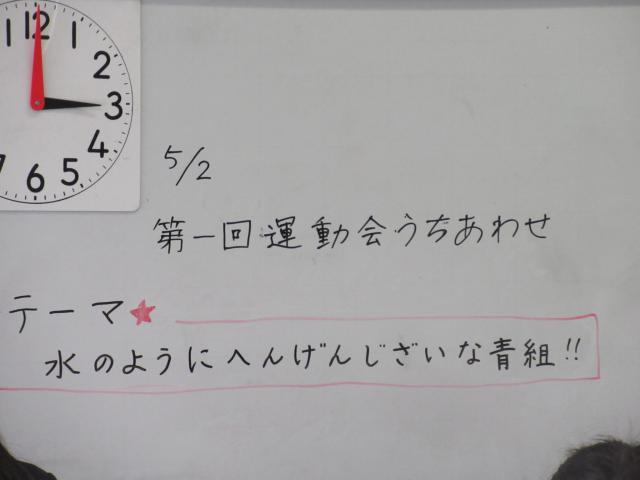 12
1
11
2
3
4
5
6
5/2
第一回運動会うちあわせ
テーマ★
水のようにへんげんじざいな青組!!